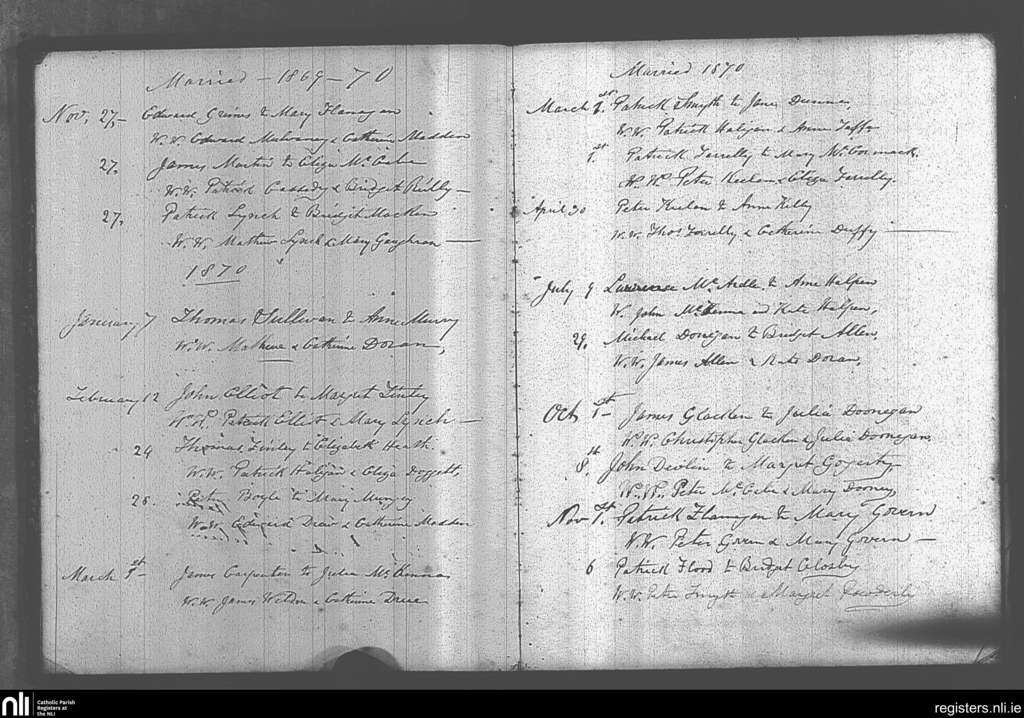 Married - 1869-70
Nov. 27. Edward Grimes & Mary Flanagan
W.W. Edward Mulvaney & Catherine Madden
27. James Martin to Eliza McCabe
W.W. Patrick Cassedy & Bridget Reilly
27. Patrick Lynch & Bridjit Macken
W.W. Mathew Lynch & Mary Gaughran
1870
January 7 Thomas Sullivan & Anne Murry
W.W. Mathew & Catherine Doran,
February 12 John Elliot to Margret Finley
W.W. Patrick Elliot & Mary Lynch
24 Thomas Finley to Elizabeth Heath
W.W. Patrick Halfpin & Eliza Doggett,
28. Peter Boyle to Mary
W.W. Edward Drew & Catherine Madden
March 1st James Carpenter to Julia McKenna
W.W. James Weldon & Catherine Drew
Married 1870
March 1st Patrick Smyth to Jane Dunne,
W.W. Patrick Halfpin & Anne Taffe
1st Patrick Farrelly to Mary McCormack.
W.W. Peter Keelan & Eliza Farrelly.
April 30 Peter Keelan & Anne Kelly
W.W. Thos Farrelly & Catherine Duffy
July 9 Lawrence McArdle & Anne Halpen
W. John McKenna and Kate Halpen,
29. Michael Donegan to Bridget Allen,
W.W. James Allen & Kate Doran,
Oct 1st James Glacken to Julia Doonegan
W.W. Christopher Glacken & Julia Doonegan,
8th John Devlin to Margret Gogerty
W.W. Peter McCabe & Mary Dooney,
Nov 1st. Patrick Flanagan to Mary Govern
W.W. Peter Govern & Mary Govern
6 Patrick Flood to Bridget Closby
W.W. Peter Smyth & Margret Cowderly
nli Catholic Parish
Registers at
the NLI
registers.nli.ie